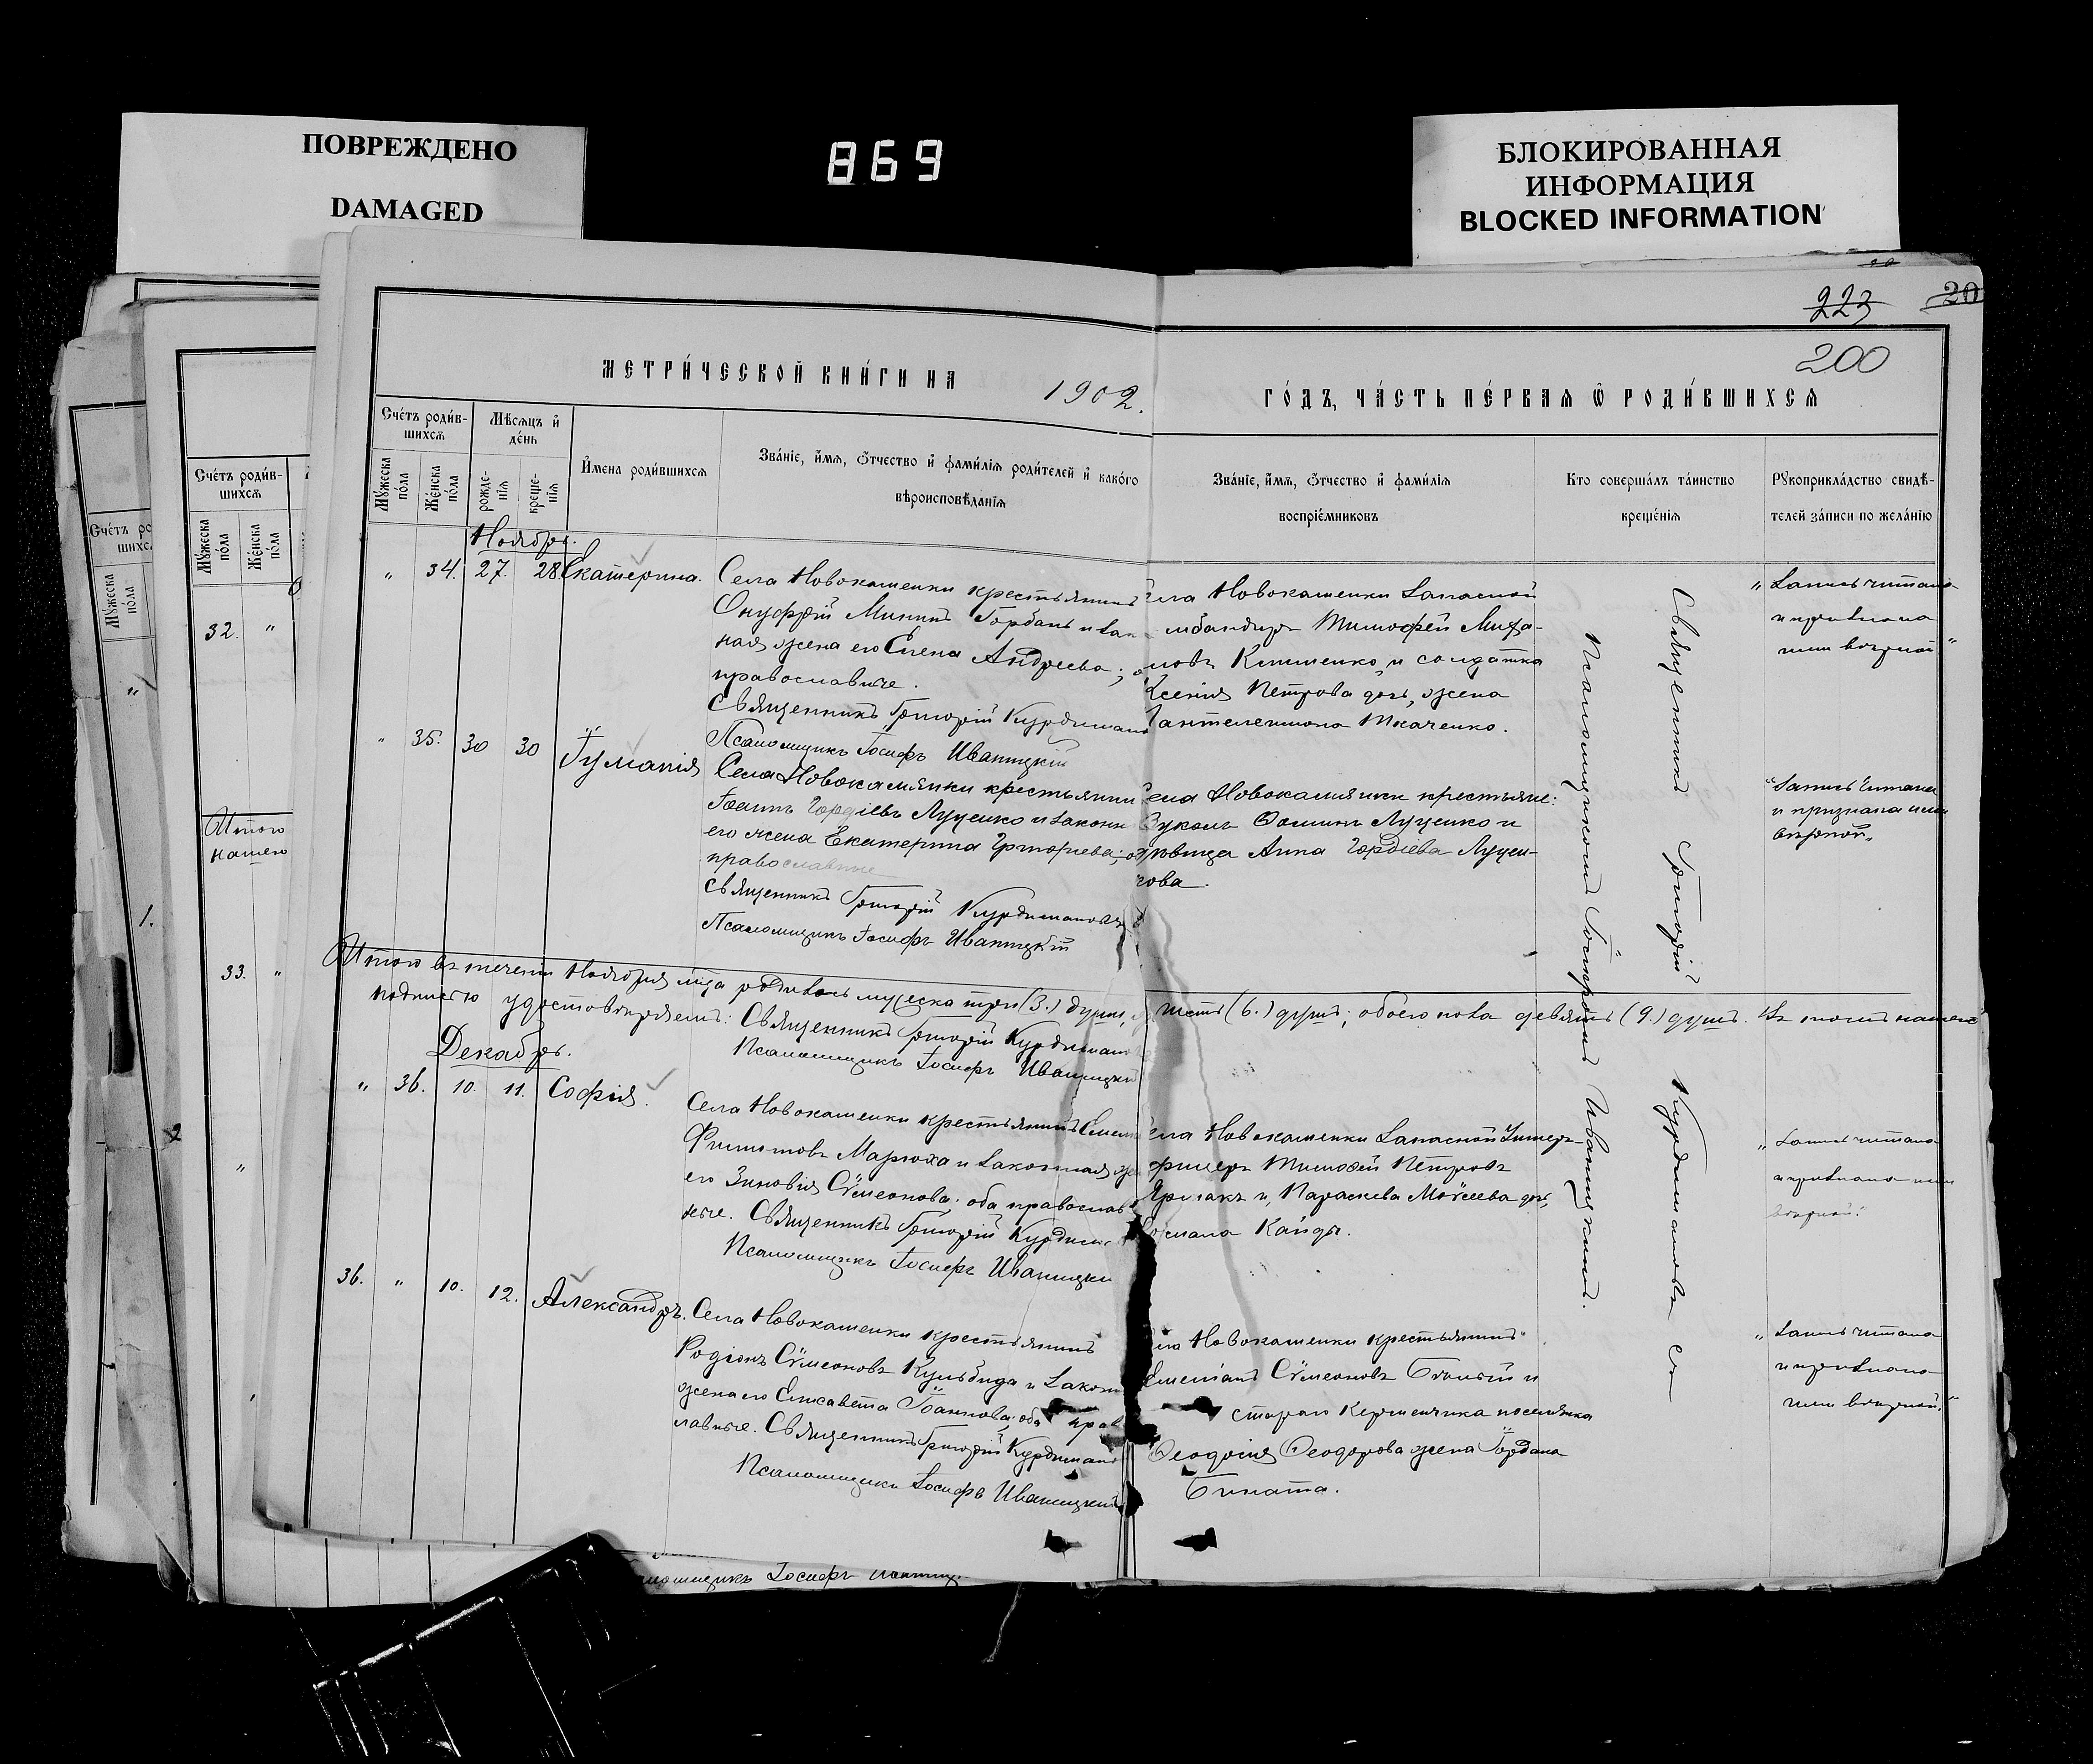 ПОВРЕЖДЕНО
DAMAGED
869
БЛОКИРОВАННАЯ
ИНФОРМАЦИЯ
BLOCKED INFORMATION
223
20
200
МЕТРИ́ЧЕСКОЙ КНИ́ГИ НА 1902.
ГО́ДЪ, ЧА́СТЬ ПЕ́РВАЯ Ѡ҆ РОДИ́ВШИХСЯ
Сче́тъ роди́в-
шихсѧ
Мѣ́сѧцъ и҆
де́нь
Мꙋ́жеска
по́ла
Же́нска
по́ла
рожде-
нїѧ
креще-
нїѧ
И҆мена роди́вшихсѧ
Зва́нїе, и҆́мѧ, ѻ҆́тчество и҆ фами́лїѧ роди́телей и҆ како́гѡ
вѣроисповѣ́данїѧ
Зва́нїе, и҆́мѧ, ѻ҆́тчество и҆ фами́лїѧ
воспрїе́мниковъ
Кто соверша́лъ та́инство
креще́нїѧ
Рꙋкоприкла́дство свидѣ́-
телей за́писи по жела́нїю
Ноябрь.
" 34. 27. 28. Екатерина.
Села Новокаменки крестьянинъ
Онуфрій Мининъ Горбань и зак
ная жена его Елена Андреева;
православные.
Священникъ Григорій Курдиманов
Псаломщикъ Іосифъ Иваницкій
ела Новокаменки Запасной
мбандиръ Тимофей
новъ Клименко и солдатка
Ксенія Петрова дочь, жена
антелеимона Ткаченко.
" Запись читана
и признана
нами вѣрной "
" 35. 30 30 Іуліанія
Села Новокаменки крестьянин
Іоаннъ Гордіевъ Луценко и законн
его жена Екатерина Григорьева;
православные
Священникъ Григорій Курдимановъ
Псаломщикъ Іосифъ Иваницкій
ела Новокаменки крестьяне:
Ѳоминъ Луценко и
Анна Гордіева Луцен-
кова.
"Запись читана
и признана нами
вѣрной"
Священникъ Григорій Курдимановъ съ
Псаломщикомъ Іосифомъ Иваницкимъ.
Итого въ теченіи Ноября м-ца родилось мужеска три (3.) души,
шесть (6.) душъ; обоего пола девять (9.) душъ. Въ томъ нашею
подписью удостовѣряемъ: Священникъ Григорій Курдиманов
Псаломщикъ Іосифъ Иваницкій
Декабрь.
" 36. 10. 11. Софія.
Села Новокаменки крестьянинъ
Филиповъ Марюха и законная
его Зиновія Сѵмеонова; оба православ
ные. Священникъ Григорій Курдим
Псаломщикъ Іосифъ Иваницкі
ела Новокаменки Запасной Унтеръ-
фицеръ Тимофей Петровъ
Ярмакъ и Параскева Моѵсеева дочь
Кайды.
" Запись читана
и признана нами
вѣрной."
36. " 10. 12. Александръ.
Села Новокаменки крестьянинъ
Родіонъ Сѵмеоновъ Кульбида и закон
жена его Елисавета Іоаннова; оба прав
лавные. Священникъ Григорій Курдиман
Псаломщикъ Іосифъ Иваницкій
ла Новокаменки крестьянинъ
Емеліанъ Сѵмеоновъ и
стараго Керменчика поселянка
Ѳеодосія Ѳеодорова жена Іордана
" Запись читана
и признана
нами вѣрной."
32. "
Итого
нашею
33. "
1.
Іосифъ